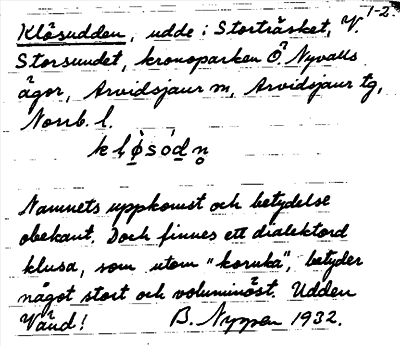 1-2.
Klåsudden, udde i Storträsket, V.
Storsundet, kronoparken Ö Nyvalls
ägor, Arvidsjaur m, Arvidsjaur tg,
Norrb. l.
Namnets uppkomst och betydelse
obekant. Dock finnes ett dialektord
klusa, som utom "koruka", betyder
något stort och voluminöst. Udden
Vänd! B. Nyppen 1932.